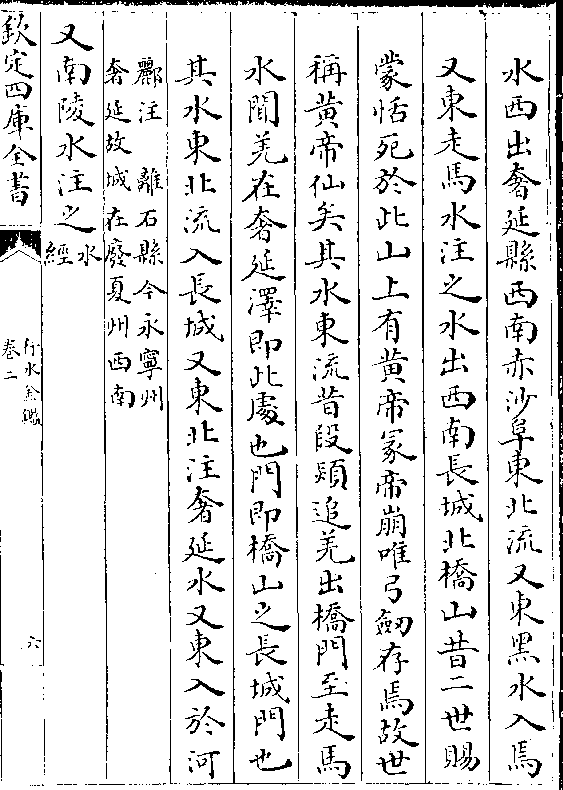 水西出奢延縣西南赤沙阜東北流又東黑水入焉
又東走馬水注之水出西南長城北橋山昔二世賜
蒙恬死於此山上有黄帝冢帝崩唯弓劒存焉故世
稱黄帝仙矣其水東流昔段熲追羌出橋門至走馬
水聞羌在奢延澤即此處也門即橋山之長城門也
其水東北流入長城又東北注奢延水又東入於河
酈注　離石縣今永寧州
奢延故城在廢夏州西南
又南陵水注之水
經
欽定四庫全書
行水金鑑
卷二
六